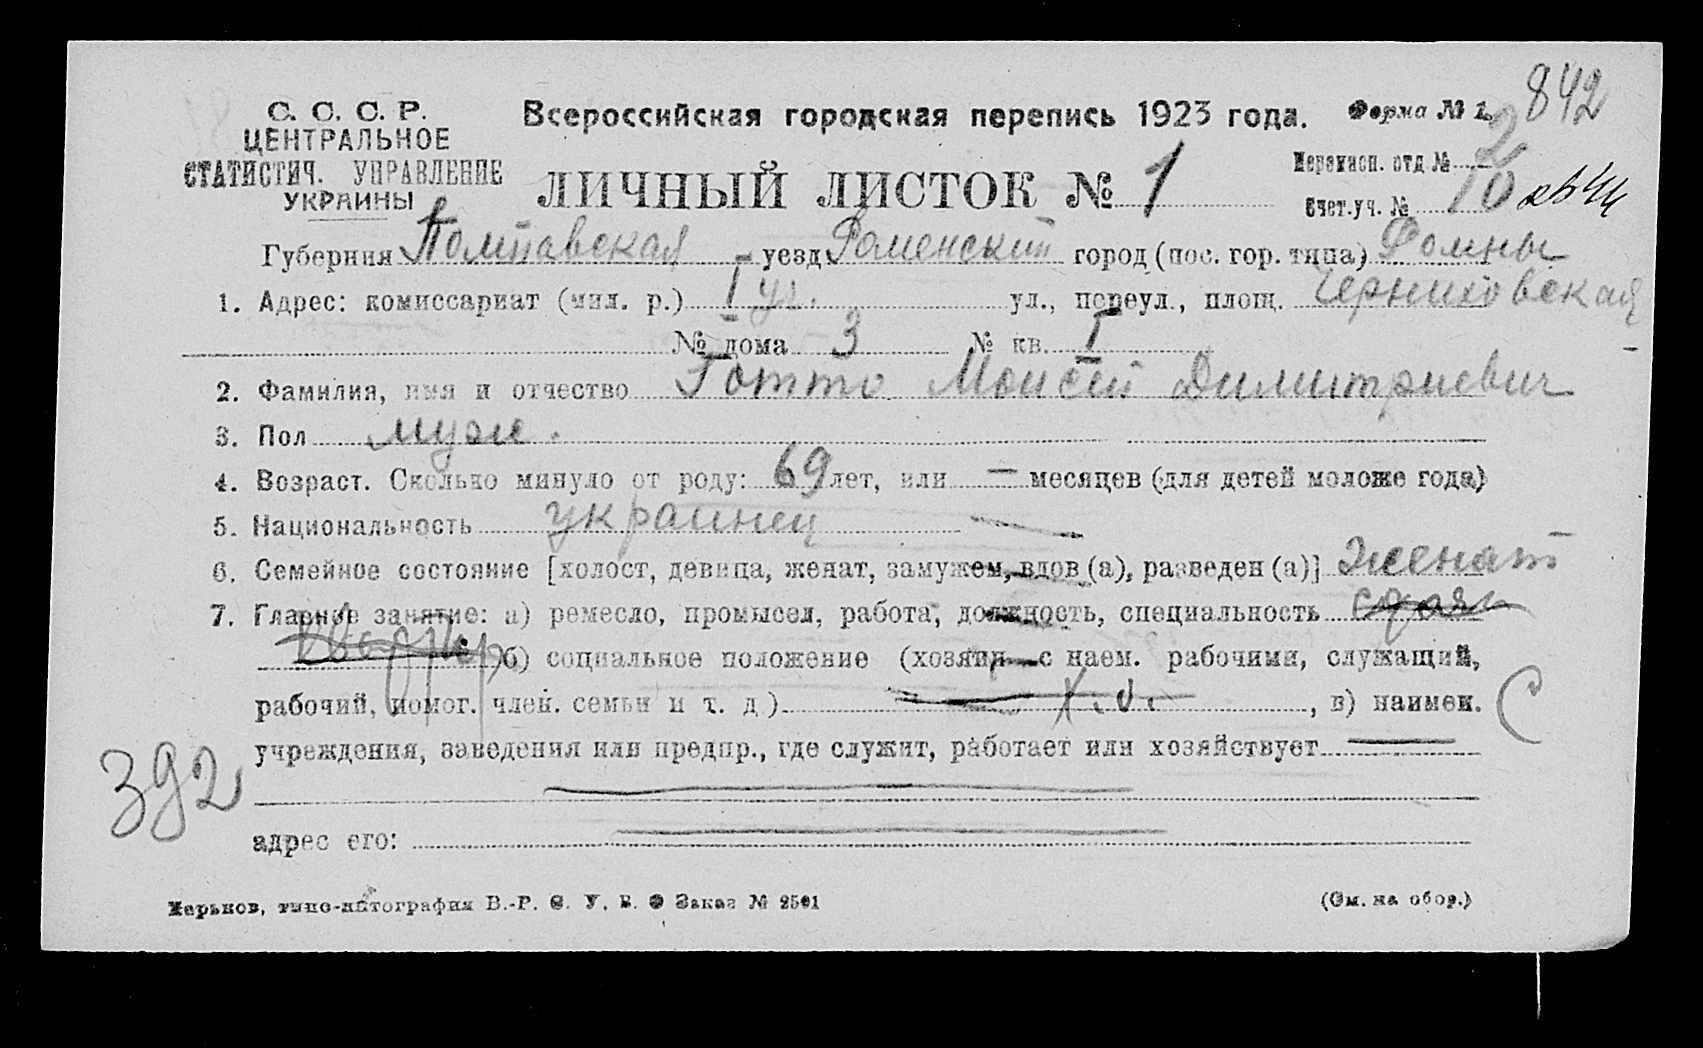 С. С. С. Р.
ЦЕНТРАЛЬНОЕ
СТАТИСТИЧ. УПРАВЛЕНИЕ
УКРАИНЫ
Всероссийская городская перепись 1923 года.
Форма № 1.
842
ЛИЧНЫЙ ЛИСТОК № 1
Переписн. отд. № 2
Счет. уч. № 10
Губерния Полтавская уезд Роменский город (пос. гор. типа) Ромны
1. Адрес: комиссариат (мил. р.) I уч. ул., переул., площ. Черниховская
№ дома 3 № кв. I
2. Фамилия, имя и отчество Готто Моисей Димитриевич
3. Пол муж.
4. Возраст. Сколько минуло от роду: 69 лет, или — месяцев (для детей моложе года)
5. Национальность украинец
6. Семейное состояние [холост, девица, женат, замужем, вдов (а), разведен (а)] Женат
7. Главное занятие: а) ремесло, промысел, работа, должность, специальность сдает
квартиру б) социальное положение (хозяин с наем. рабочими, служащий,
рабочий, помог. член. семьи и т. д.) , в) наимен.
учреждения, заведения или предпр., где служит, работает или хозяйствует —
392
адрес его:
Харьков, типо-литография В.-Р. С. У. В. О Заказ № 2501
(См. на обор.)